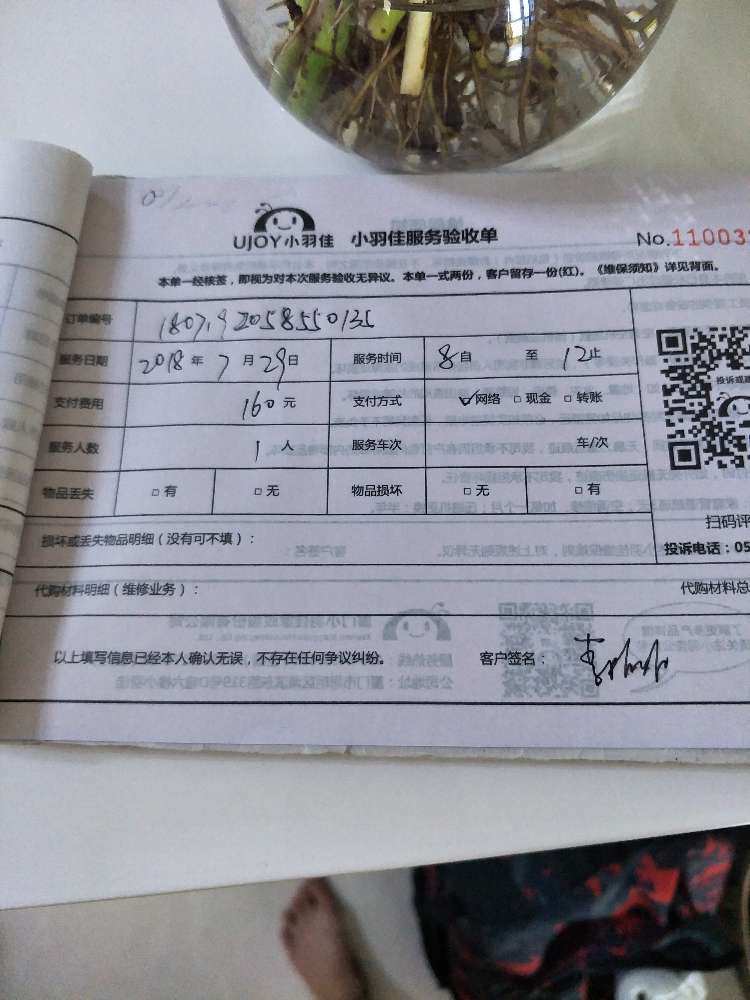 UJOY小羽佳 小羽佳服务验收单 No.11003
本单一经核签，即视为对本次服务验收无异议。本单一式两份，客户留存一份(红)。《维保须知》详见背面。
订单编号 1807192058550135
服务日期 2018年7月29日 服务时间 8自 至 12止
支付费用 160元 支付方式 ☑网络 □现金 □转账
服务人数 1人 服务车次 车/次
物品丢失 □有 □无 物品损坏 □无 □有
损坏或丢失物品明细（没有可不填）：
扫码评
投诉电话：05
代购材料明细（维修业务）： 代购材料总
以上填写信息已经本人确认无误，不存在任何争议纠纷。 客户签名：